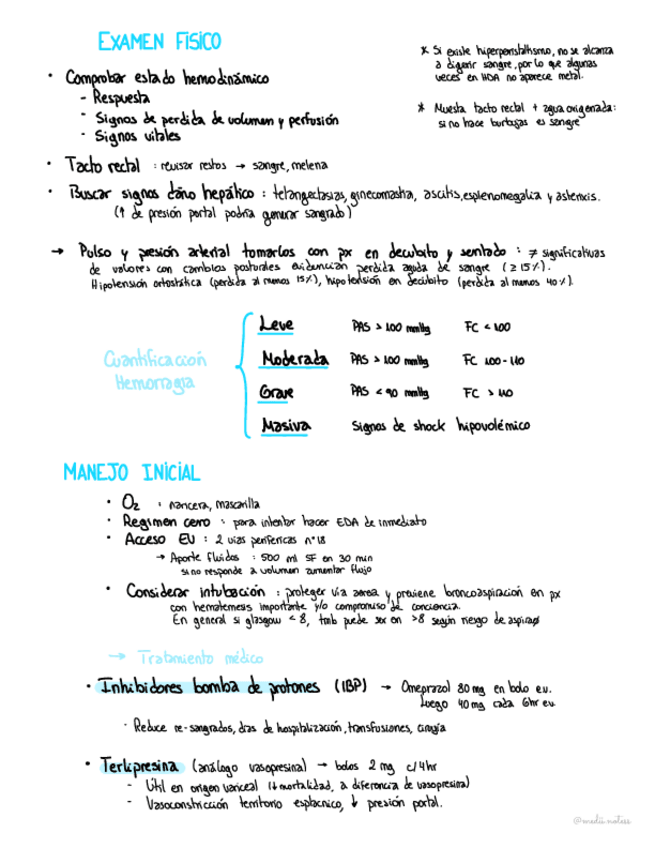 EXAMEN FISICO
* Si existe hiperperistaltismo, no se alcanza
a digerir sangre, por lo que algunas
veces en HDA no aparece melal.
* Muesta tacto rectal + agua oxigenada:
si no hace burbujas es sangre
• Comprobar estado hemodinámico
- Respuesta
- Signos de perdida de volumen y perfusión
- Signos vitales
• Tacto rectal : revisar restos → sangre, melena
• Buscar signos daño hepático : telangectasias, ginecomastia, ascitis, esplenomegalia y asterixis.
(↑ de presión portal podría generar sangrado)
→ Pulso y presión arterial tomarlos con px en decubito y sentado : ≠ significativas
de valores con cambios posturales evidencian perdida aguda de sangre (≥ 15%).
Hipotensión ortostática (perdida al menos 15%), hipotensión en decúbito (perdida al menos 40%).
Cuantificación
Hemorragia
Leve PAS > 100 mmHg FC < 100
Moderada PAS > 100 mmHg FC 100-110
Grave PAS < 90 mmHg FC > 110
Masiva Signos de shock hipovolémico
MANEJO INICIAL
• O2 : naricera, mascarilla
• Regimen cero : para intentar hacer EDA de inmediato
• Acceso EV : 2 vías perifericas n°18
→ Aporte fluidos : 500 ml SF en 30 min
si no responde a volumen aumentar flujo
• Considerar intubación : proteger vía aerea y previene broncoaspiración en px
con hematemesis importante y/o compromiso de conciencia.
En general si glasgow < 8, tmb puede ser en >8 según riesgo de aspirar
→ Tratamiento médico
• Inhibidores bomba de protones (IBP) → Omeprazol 80 mg en bolo e.v.
Luego 40 mg cada 6hr ev.
• Reduce re-sangrados, días de hospitalización, transfusiones, cirugía
• Terlipresina (análogo vasopresina) → bolos 2 mg c/4hr
- Útil en origen variceal (↓ mortalidad, a diferencia de vasopresina)
- Vasoconstricción territorio esplacnico, ↓ presión portal.
@medii.notess